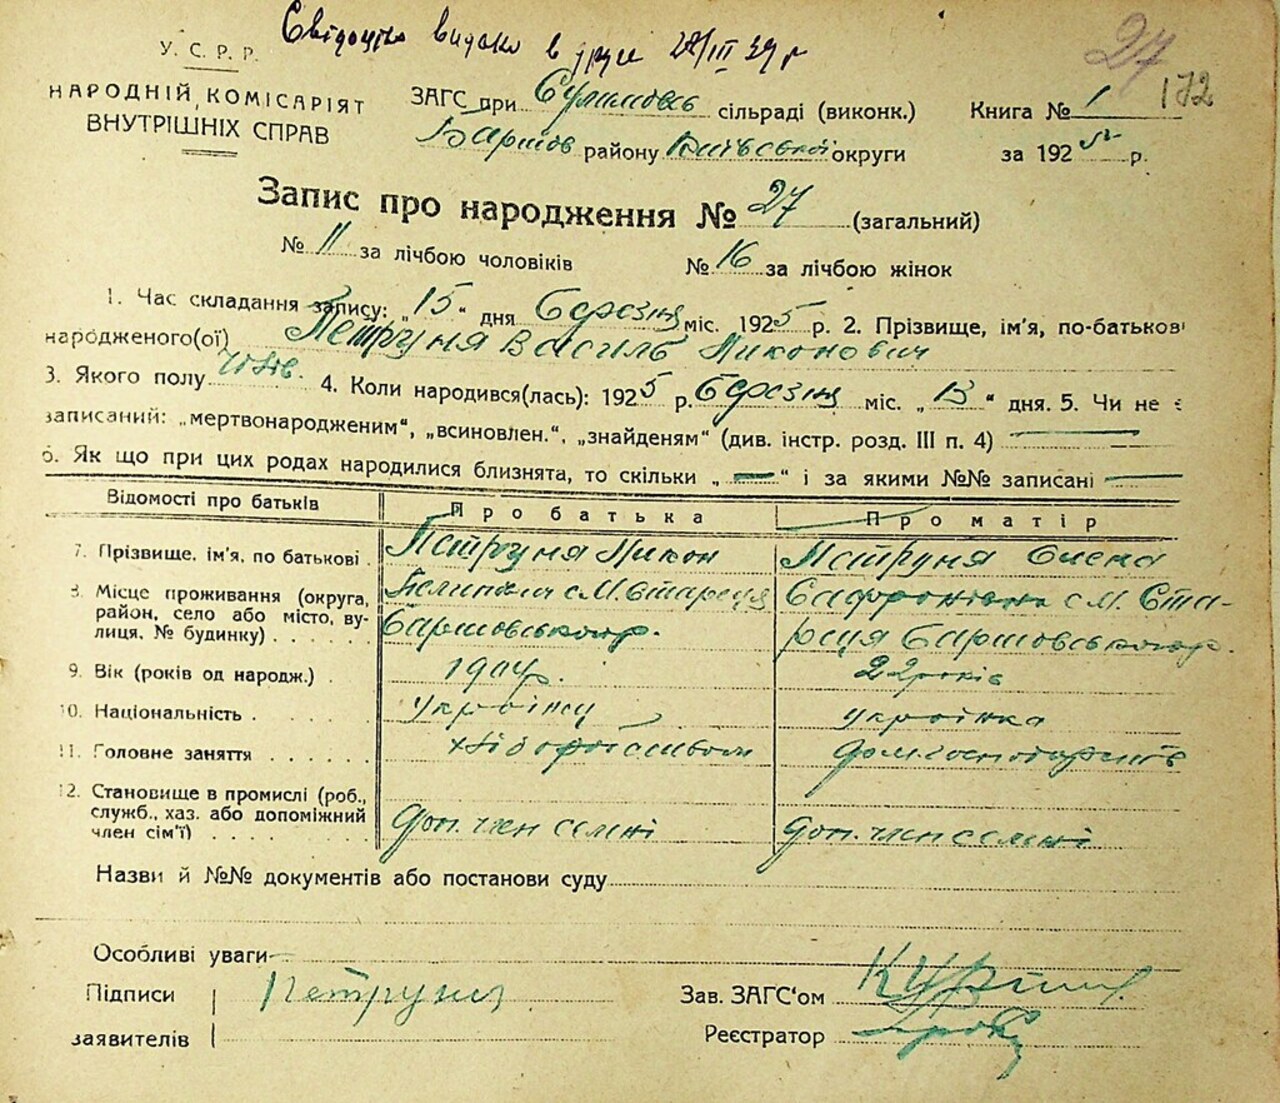 Свідоцтво видано в друге 28/III 39 р
27
172
У. С. Р. Р.
НАРОДНІЙ КОМІСАРІЯТ
ВНУТРІШНІХ СПРАВ
ЗАГС при Сулимовсь сільраді (виконк.) Книга № 1
Баришов району Київської округи за 1925 р.
Запис про народження № 27 (загальний)
№ 11 за лічбою чоловіків № 16 за лічбою жінок
1. Час складання запису: „15“ дня березня міс. 1925 р. 2. Прізвище, ім'я, по-батькові
народженого(ої) Петруня Василь Никонович
3. Якого полу чолов. 4. Коли народився(лась): 1925 р. березня міс. „13“ дня. 5. Чи не є
записаний: „мертвонародженим“, „всиновлен.“, „знайденям“ (див. інстр. розд. III п. 4) —
6. Як що при цих родах народилися близнята, то скільки „—“ і за якими №№ записані —
Відомості про батьків Про батька Про матір
7. Прізвище. ім'я, по батькові . Петруня Никон Петруня Олена
8. Місце проживання (округа, район, село або місто, вулиця, № будинку) . . . . . с М. Стариця Баришовського р. Сафронівна с М. Стариця Баришовського р.
9. Вік (років од народж.) . 1904 р. 22 років
10. Національність . . . . . українец українка
11. Головне заняття . . . . . . хліборобством дом. господарств
12. Становище в промислі (роб., служб., хаз. або допоміжний член сім'ї) . . . . доп. член семні доп. член семні
Назви й №№ документів або постанови суду
Особливі уваги —
Підписи Петруня Зав. ЗАГС'ом
заявителів Реєстратор